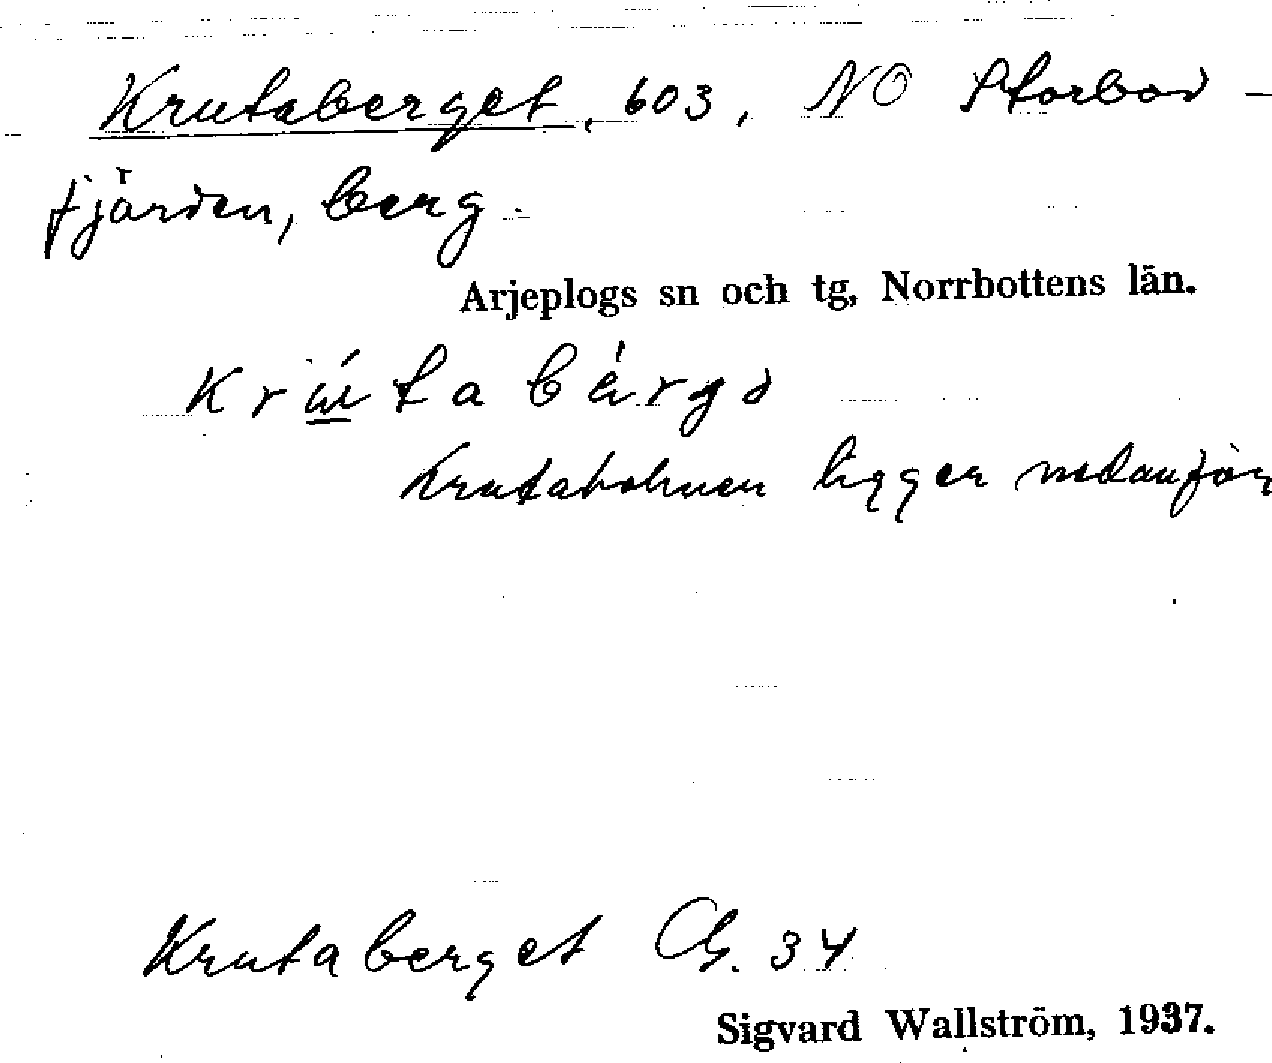 Krutaberget, 603, NO Storbod-
fjärden, berg.
Arjeplogs sn och tg, Norrbottens län.
Krutaholmen ligger nedanför
Krutaberget 34
Sigvard Wallström, 1937.